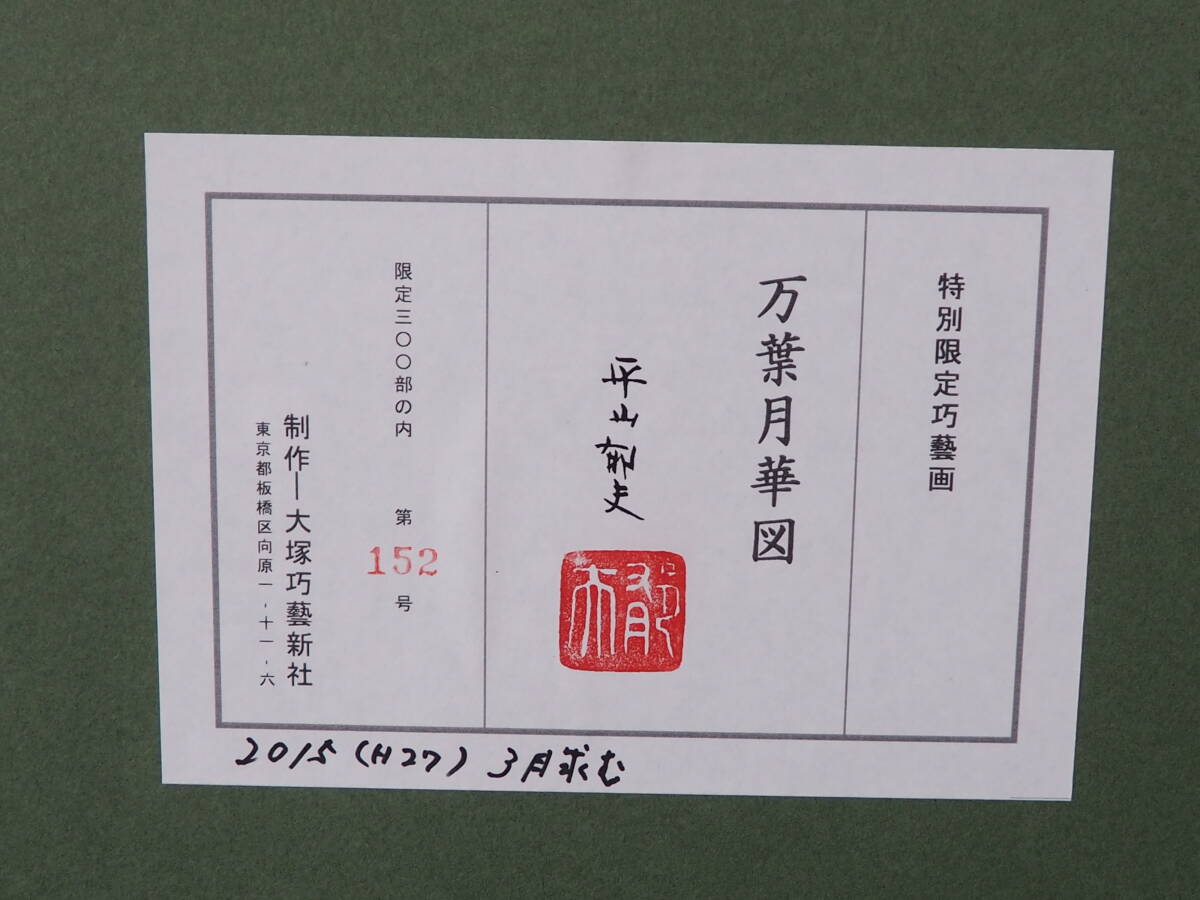 特別限定巧藝画
万葉月華図
平山郁夫
郁夫
限定三〇〇部の内 第152号
制作ー大塚巧藝新社
東京都板橋区向原一-十一-六
2015(H27)3月求む